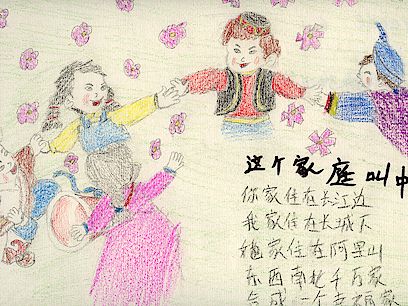 这个家庭叫中
你家住在长江边
我家住在长城下
她家住在阿里山
东西南北千万家
合成一个幸福家